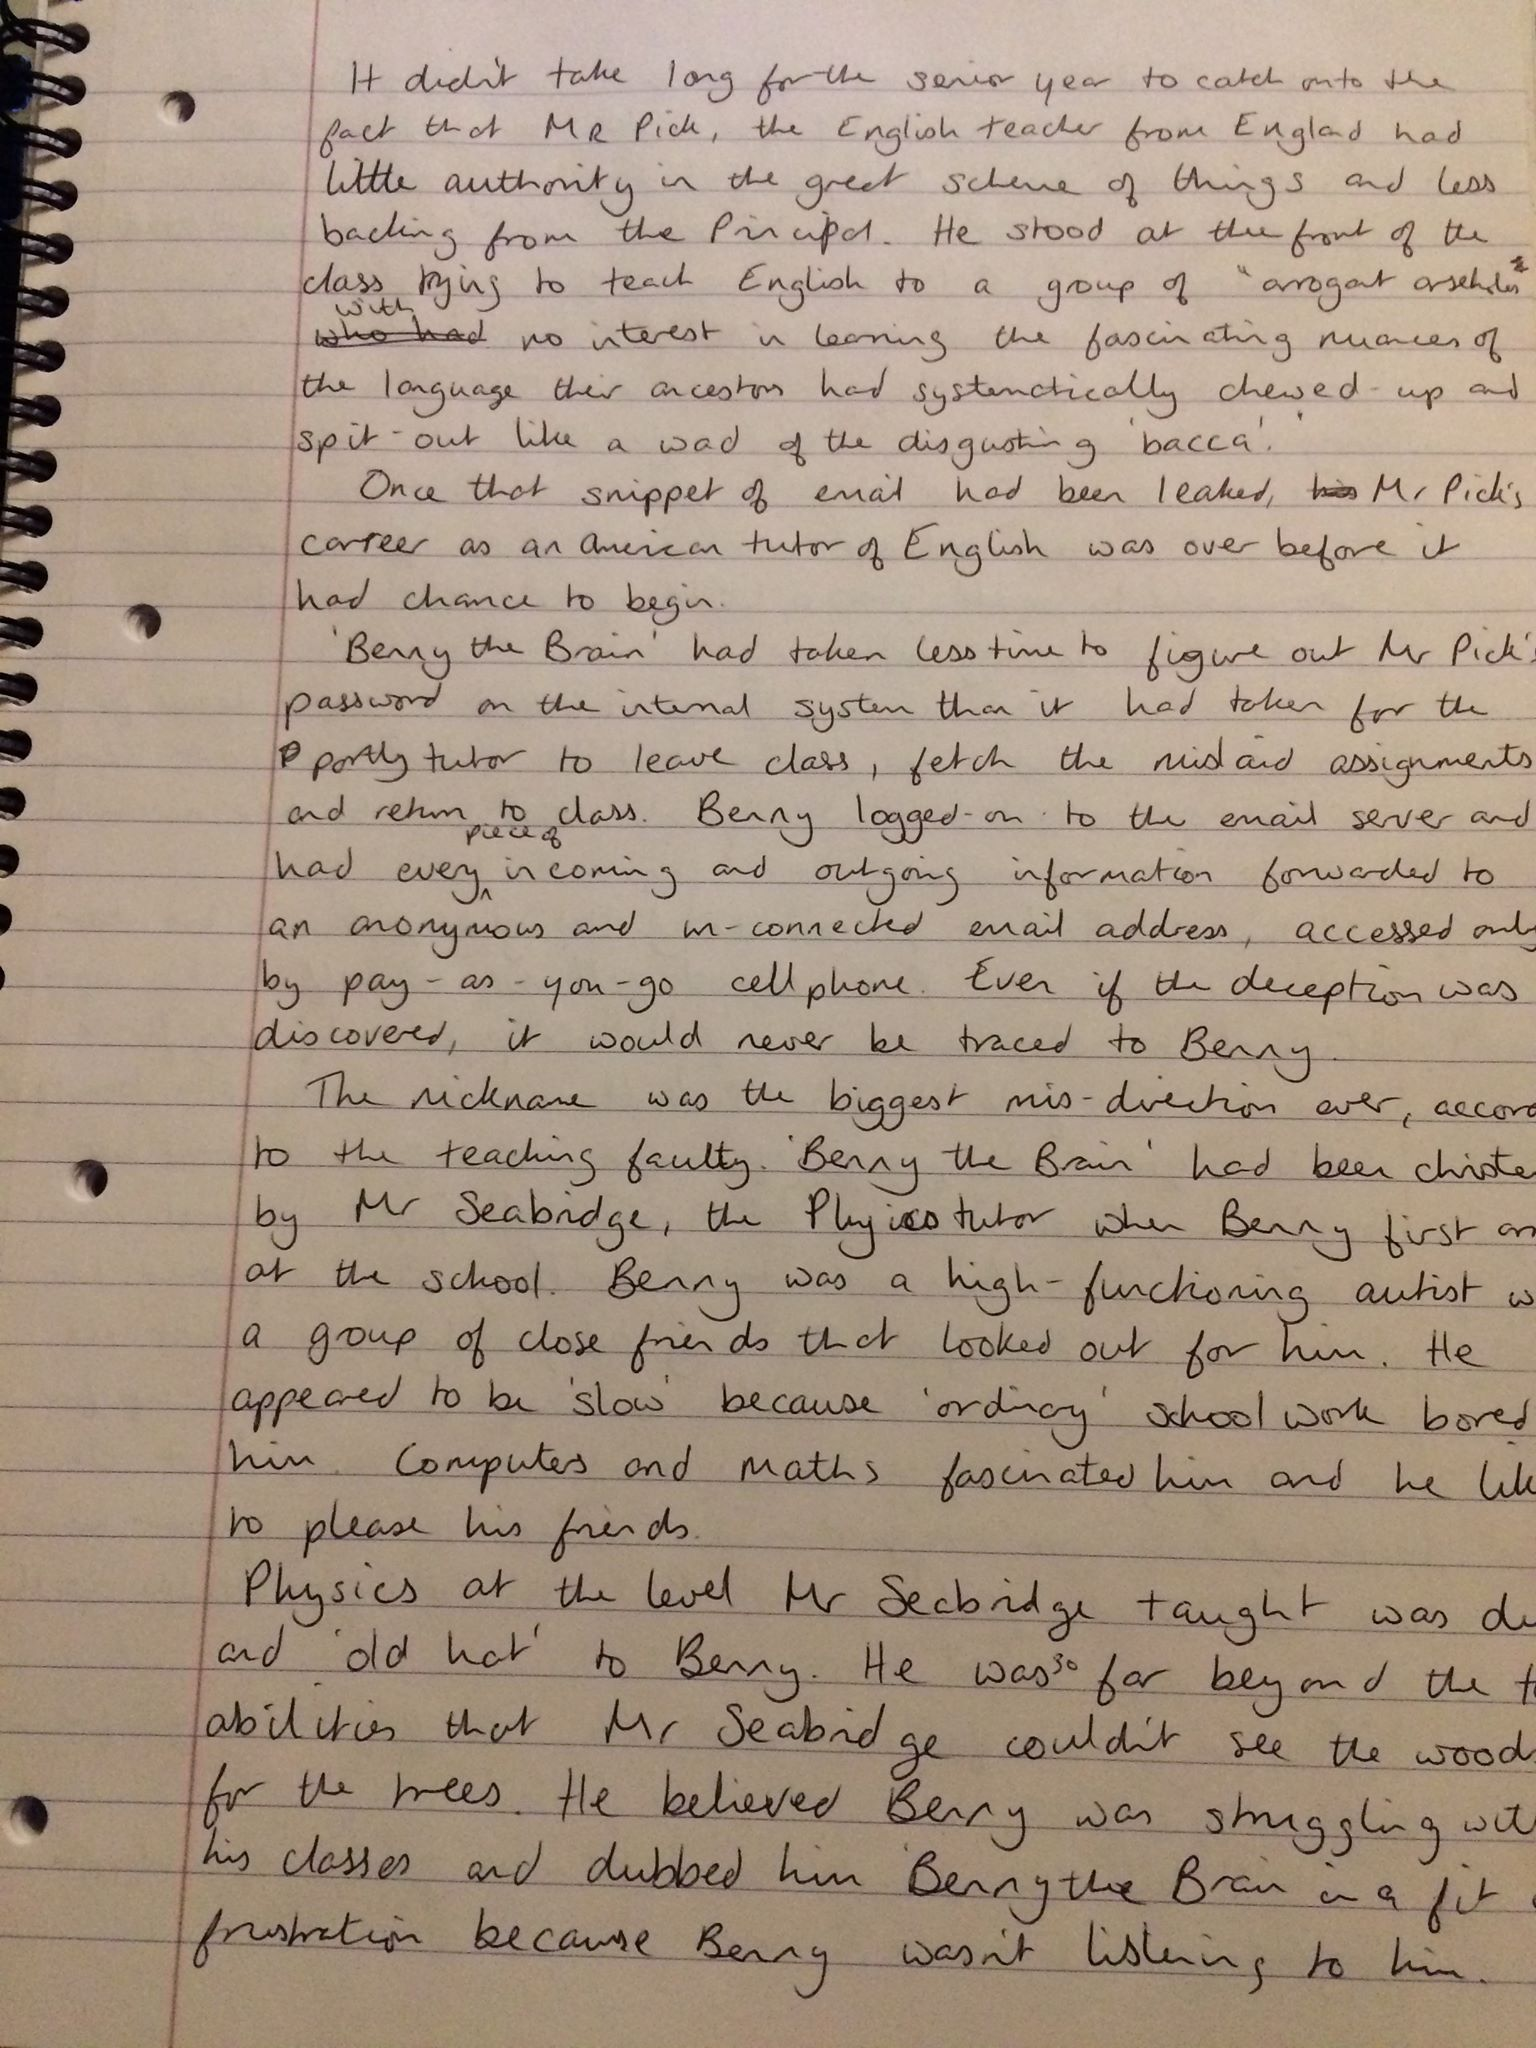 It didn't take long for the senior year to catch onto the
fact that MR Pick, the English teacher from England had
little authority in the great scheme of things and less
backing from the Principal. He stood at the front of the
class trying to teach English to a group of "arrogant arseholes"
with
who had no interest in learning the fascinating nuances of
the language their ancestors had systematically chewed-up and
spit-out like a wad of the disgusting 'bacca'."
Once that snippet of email had been leaked, his Mr Pick's
career as an American tutor of English was over before it
had chance to begin.
'Benny the Brain' had taken less time to figure out Mr Pick's
password on the internal system than it had taken for the
portly tutor to leave class, fetch the mislaid assignments
and return to class. Benny logged-on to the email server and
piece of
had every ^ incoming and outgoing information forwarded to
an anonymous and un-connected email address, accessed only
by pay-as-you-go cell phone. Even if the deception was
discovered, it would never be traced to Benny.
The nickname was the biggest mis-direction ever, accord
to the teaching faulty. 'Benny the Brain' had been christe
by Mr Seabridge, the Physics tutor when Benny first arr
at the school. Benny was a high-functioning autist w
a group of close friends that looked out for him. He
appeared to be 'slow' because 'ordinary' school work bored
him. Computers and maths fascinated him and he like
to please his friends.
Physics at the level Mr Seabridge taught was du
and 'old hat' to Benny. He was so far beyond the t
abilities that Mr Seabridge couldn't see the wood
for the trees. He believed Benny was struggling wit
his classes and dubbed him 'Benny the Brain in a fit
frustration because Benny wasn't listening to him.